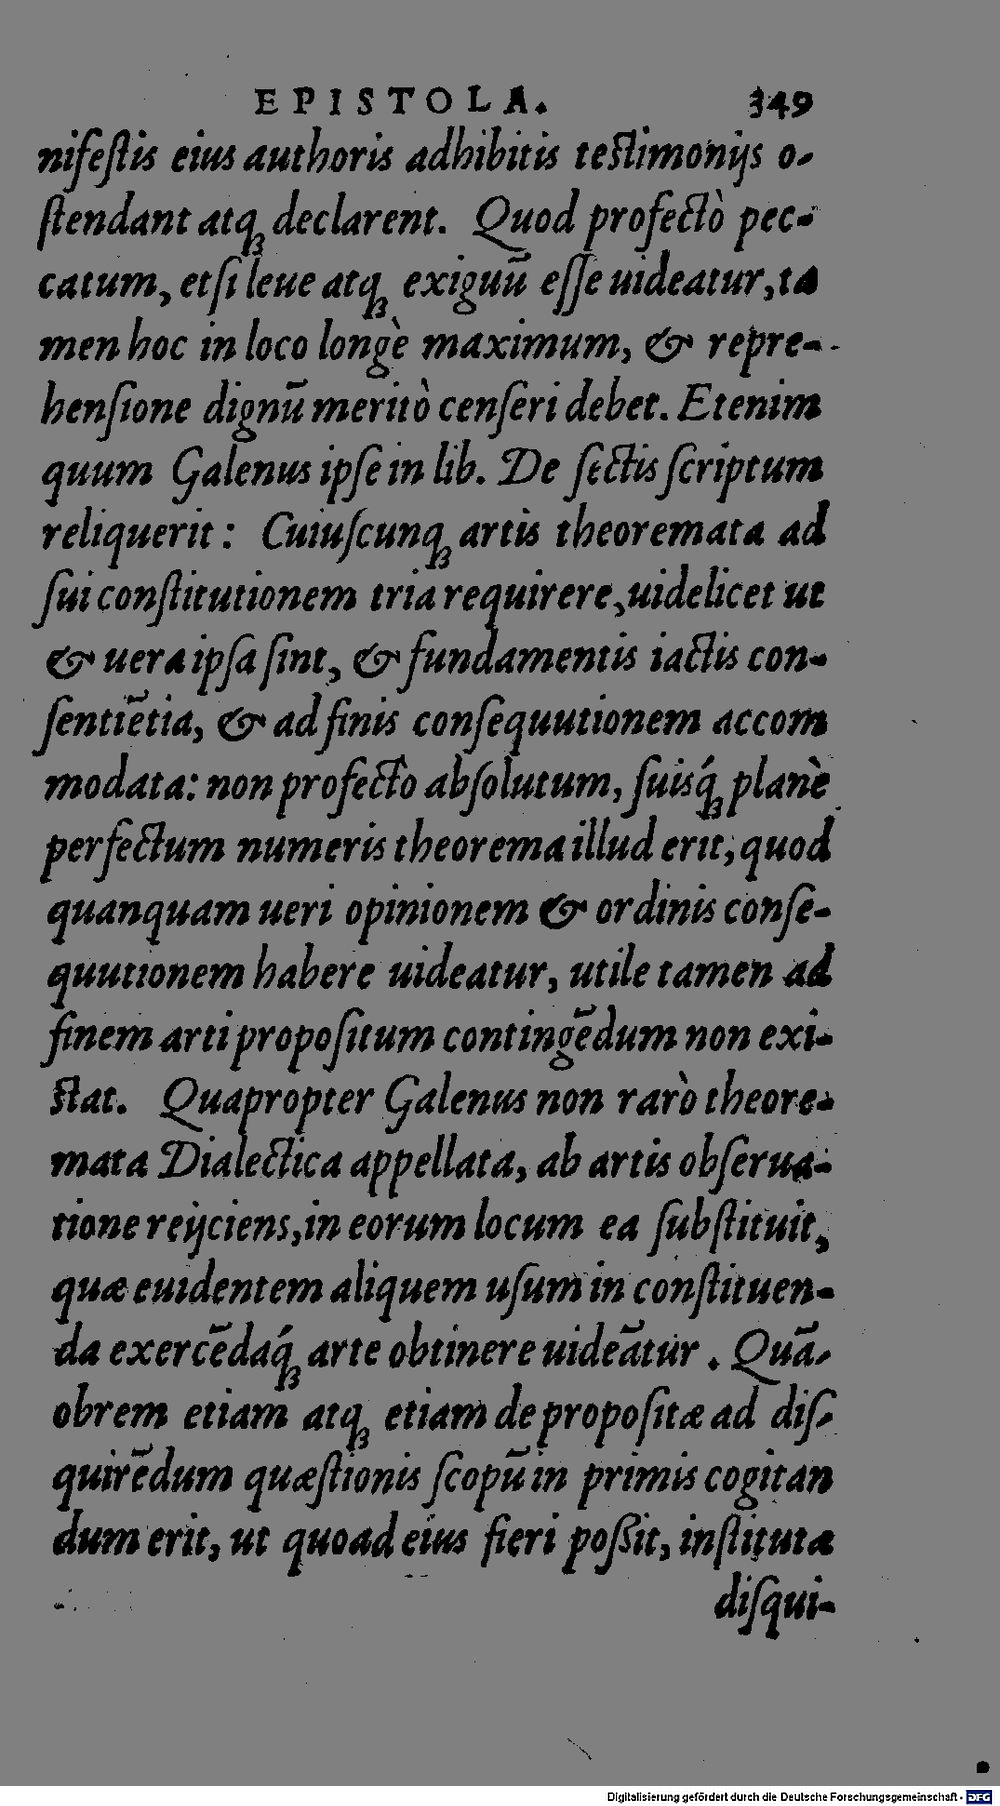 EPISTOLA. 349
nifeſtis eius authoris adhibitis teſtimonijs o-
ſtendant atqꝫ declarent. Quod profectò pec-
catum, etſi leue atqꝫ exiguū eſſe uideatur, ta
men hoc in loco longè maximum, & repre-
henſione dignū meritò cenſeri debet. Etenim
quum Galenus ipſe in lib. De ſectis ſcriptum
reliquerit: Cuiuſcunqꝫ artis theoremata ad
ſui conſtitutionem tria requirere, uidelicet ut
& uera ipſa ſint, & fundamentis iactis con-
ſentiētia, & ad finis conſequutionem accom
modata: non profectò abſolutum, ſuisq́ꝫ planè
perfectum numeris theorema illud erit, quod
quanquam ueri opinionem & ordinis conſe-
quutionem habere uideatur, utile tamen ad
finem arti propoſitum contingēdum non exi-
ſtat. Quapropter Galenus non rarò theore-
mata Dialectica appellata, ab artis obſerua-
tione reijciens, in eorum locum ea ſubſtituit,
quæ euidentem aliquem uſum in conſtituen-
da exercēdaq́ꝫ arte obtinere uideātur. Quā-
obrem etiam atqꝫ etiam de propoſitæ ad diſ-
quirēdum quæſtionis ſcopū in primis cogitan
dum erit, ut quoad eius fieri poßit, inſtituta
diſqui-
Digitalisierung gefördert durch die Deutsche Forschungsgemeinschaft - DFG